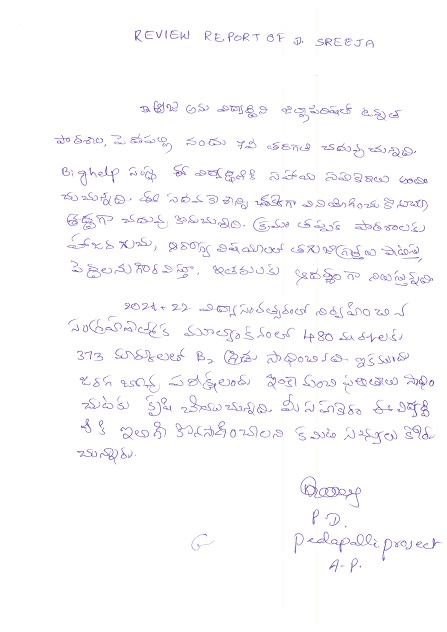 REVIEW REPORT OF D. SREEJA
D శ్రీజ అను విద్యార్థిని జిల్లాపరిషత్ ఉన్నత
పాఠశాల, పెదపల్లి నందు 7వ తరగతి చదువుచున్నది.
Bighelp సంస్థ ఈ విద్యార్థినికి సహాయ సహకారాలు అందిం
చుచున్నది. ఈ సదవకాశాన్ని చక్కగా వినియోగించు కొనుచూ
శ్రద్ధగా చదువు కొనుచున్నది. క్రమం తప్పక పాఠశాలకు
హాజరగుచూ, ఆరోగ్య విషయాలలో తగు జాగ్రత్తలు పాటిస్తూ
పెద్దలను గౌరవిస్తూ, ఇతరులకు ఆదర్శంగా నిలుస్తున్నది
2021+22 విద్యా సంవత్సరంలో నిర్వహించిన
సంగ్రహణాత్మక మూల్యాంకనంలో 480 మార్కులకు
373 మార్కులతో B2 గ్రేడు సాధించినది. ఇకముందు
జరగ బోవు పరీక్షలందు ఇంకా మంచి ఫలితాలు సాధిం
చుటకు కృషి చేయుచున్నది. మీ సహకారం ఈ విద్యార్థి
నికి ఇలాగే కొనసాగించాలని కమిటి సభ్యులు కోరు
చున్నారు.
P D.
pedapalli project
A-P.